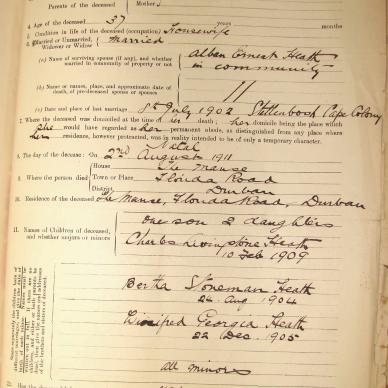 Parents of the deceased
Mother
4. Age of the deceased 37 years months
5. Condition in life of the deceased (occupation) Housewife
6. Married or Unmarried, Married
Widower or Widow
(a) Name of surviving spouse (if any), and whether Alban Ernest Heath
married in community of property or not in community
(b) Name or names, place, and approximate date of
death, of pre-deceased spouse or spouses "
(c) Date and place of last marriage. 8th July 1902 Stellenbosch Cape Colony
7. Where the deceased was domiciled at the time of her death; her domicile being the place which
she would have regarded as her permanent abode, as distinguished from any place where
her residence, however protracted, was in reality intended to be only of a temporary character.
Natal
8. The day of the decease: On 2nd August 1911
House The Manse
9. Where the person died Town or Place Florida Road
District Durban
10. Residence of the deceased The Manse, Florida Road, Durban
one son 2 daughters
11. Names of Children of deceased,
and whether majors or minors Charles Livingstone Heath
10 Feb 1909
Bertha Stoneman Heath
24 Aug 1904
Winifred Georgia Heath
22 Dec. 1905
all minors